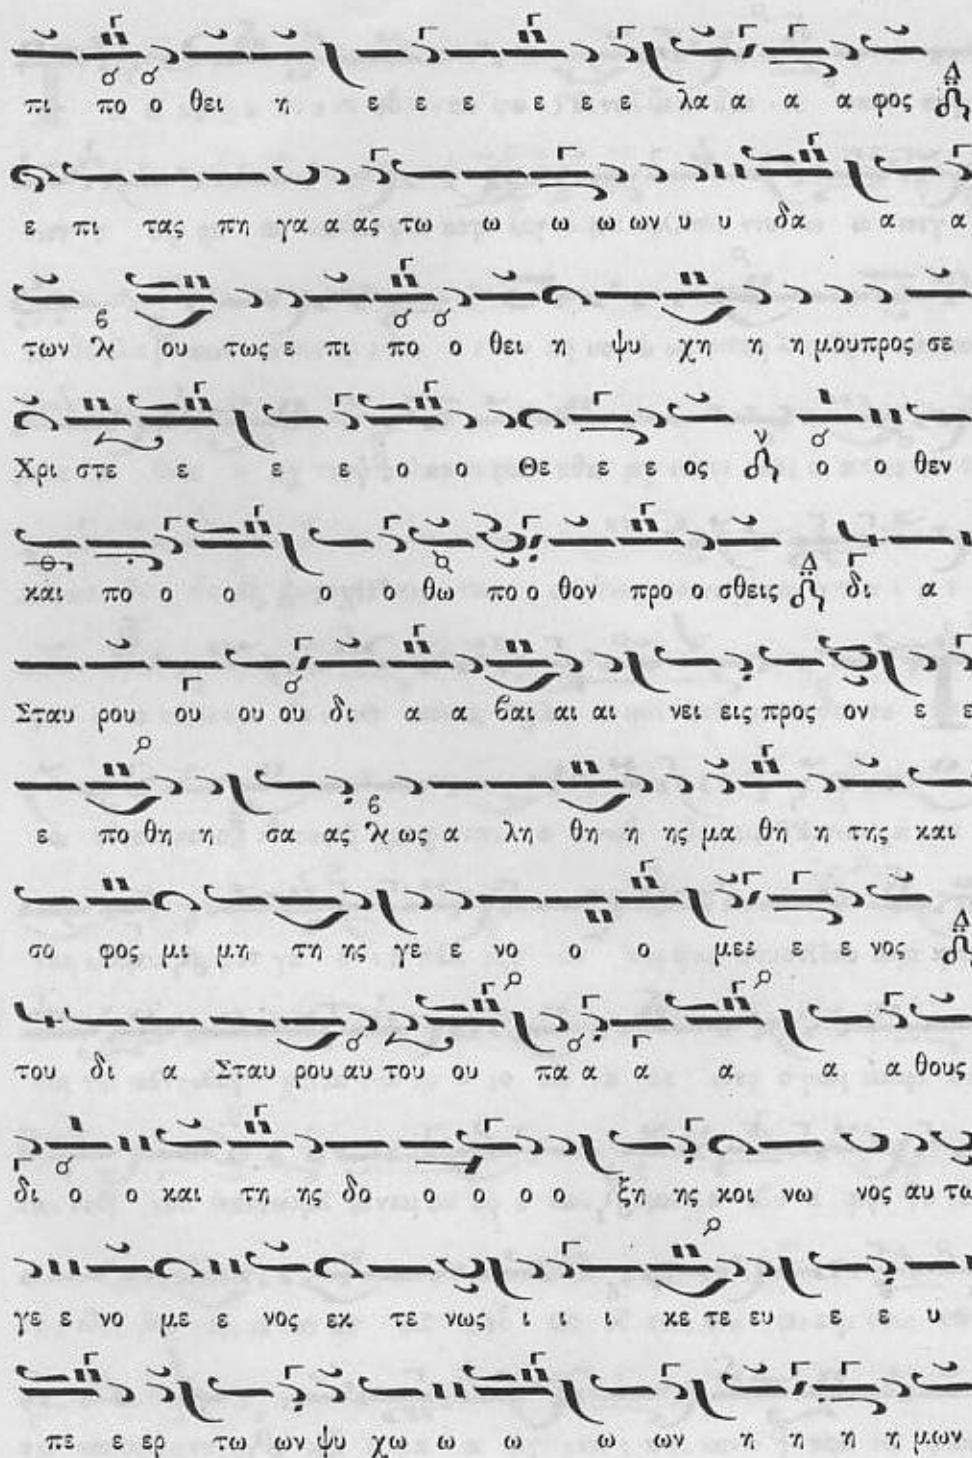 πι πο ο θει η ε ε ε ε ε ε ε λα α α α φος Δ
ε πι τας πη γα α ας τω ω ω ω ων υ υ δα α α
των ϐ λ ου τως ε πι πο ο θει η ψυ χη η η μου προς σε
Χρι στε ε ε ε ο ο Θε ε ε ος ν ο ο θεν
και πο ο ο ο ο θω πο ο θον προ ο σθεις Δ δι α
Σταυ ρου ου ου ου δι α α ϐαι αι αι νει εις προς ον ε ε
ε πο θη η σα ας ϐ λ ως α λη θη η ης μα θη η της και
σο φος μι μη τη ης γε ε νο ο ο μεε ε ε νος Δ
του δι α Σταυ ρου αυ του ου πα α α α α α θους
δι ο ο και τη ης δο ο ο ο ο ξη ης κοι νω νος αυ τω
γε ε νο με ε νος εκ τε νως ι ι ι κε τε ευ ε ε υ
πε ε ερ τω ων ψυ χω ω ω ω ων η η η η μων